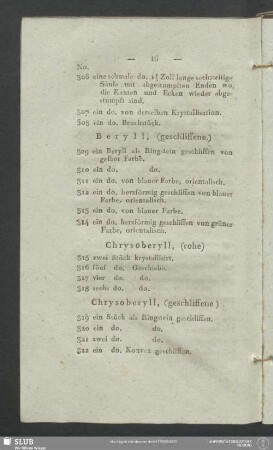 — 16 —
No.
306 eine schmale do. 1¼ Zoll lange sechsseitige
Säule mit abgestumpften Enden wo
die Kanten und Ecken wieder abge-
stumpft sind.
307 ein do. von derselben Krystallisation.
308 ein do. Bruchstück.
Beryll, (geschliffene.)
309 ein Beryll als Ringstein geschliffen von
gelber Farbe.
310 ein do. do.
311 ein do. von blauer Farbe, orientalisch.
312 ein do. herzförmig geschliffen von blauer
Farbe, orientalisch.
313 ein do. von blauer Farbe.
314 ein do. herzförmig geschliffen von grüner
Farbe, orientalisch.
Chrysoberyll, (rohe)
315 zwei Stück krystallisirt.
316 fünf do. Geschiebe.
317 vier do. do.
318 sechs do. do.
Chrysoberyll, (geschliffene)
319 ein Stück als Ringstein geschliffen.
320 ein do. do.
321 zwei do. do.
322 ein do. Konvex geschliffen.
SLUB
Wir führen Wissen.